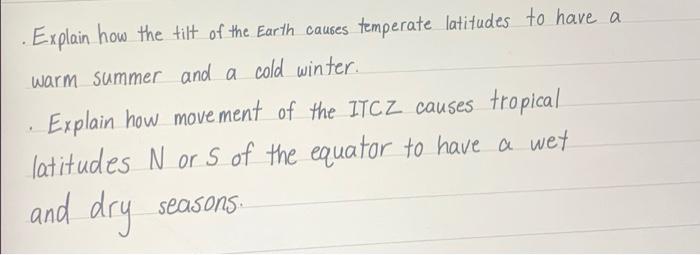 . Explain how the tilt of the Earth causes temperate latitudes to have a
warm summer and a cold winter.
. Explain how movement of the ITCZ causes tropical
latitudes N or S of the equator to have a wet
and dry seasons.